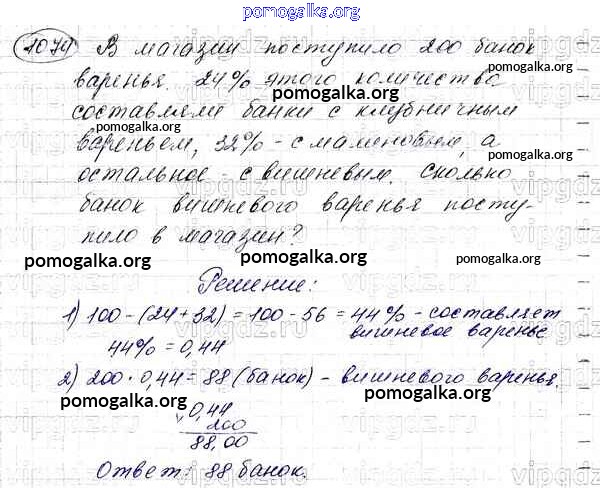 pomogalka.org
1074 В магазин поступило 200 банок
pomogalka.org
варенья. 24% этого количества
составляли банки с клубничным
pomogalka.org
вареньем, 32% - с малиновым, а
pomogalka.org
остальное - с вишневым. Сколько
банок вишневого варенья посту-
pomogalka.org
пило в магазин?
pomogalka.org
Решение:
1) 100 - (24 + 32) = 100 - 56 = 44% - составляет
вишневое варенье
44% = 0,44
pomogalka.org
2) 200 · 0,44 = 88 (банок) - вишневого варенья.
pomogalka.org
0,44
200
88,00
pomogalka.org
Ответ: 88 банок.